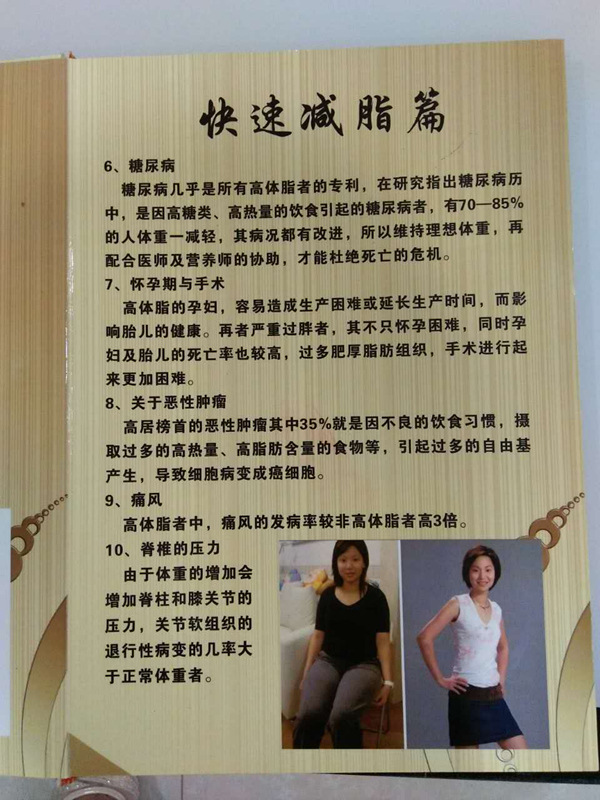 快速减脂篇
6、糖尿病
糖尿病几乎是所有高体脂者的专利，在研究指出糖尿病历
中，是因高糖类、高热量的饮食引起的糖尿病者，有70—85%
的人体重一减轻，其病况都有改进，所以维持理想体重，再
配合医师及营养师的协助，才能杜绝死亡的危机。
7、怀孕期与手术
高体脂的孕妇，容易造成生产困难或延长生产时间，而影
响胎儿的健康。再者严重过胖者，其不只怀孕困难，同时孕
妇及胎儿的死亡率也较高，过多肥厚脂肪组织，手术进行起
来更加困难。
8、关于恶性肿瘤
高居榜首的恶性肿瘤其中35%就是因不良的饮食习惯，摄
取过多的高热量、高脂肪含量的食物等，引起过多的自由基
产生，导致细胞病变成癌细胞。
9、痛风
高体脂者中，痛风的发病率较非高体脂者高3倍。
10、脊椎的压力
由于体重的增加会
增加脊柱和膝关节的
压力，关节软组织的
退行性病变的几率大
于正常体重者。